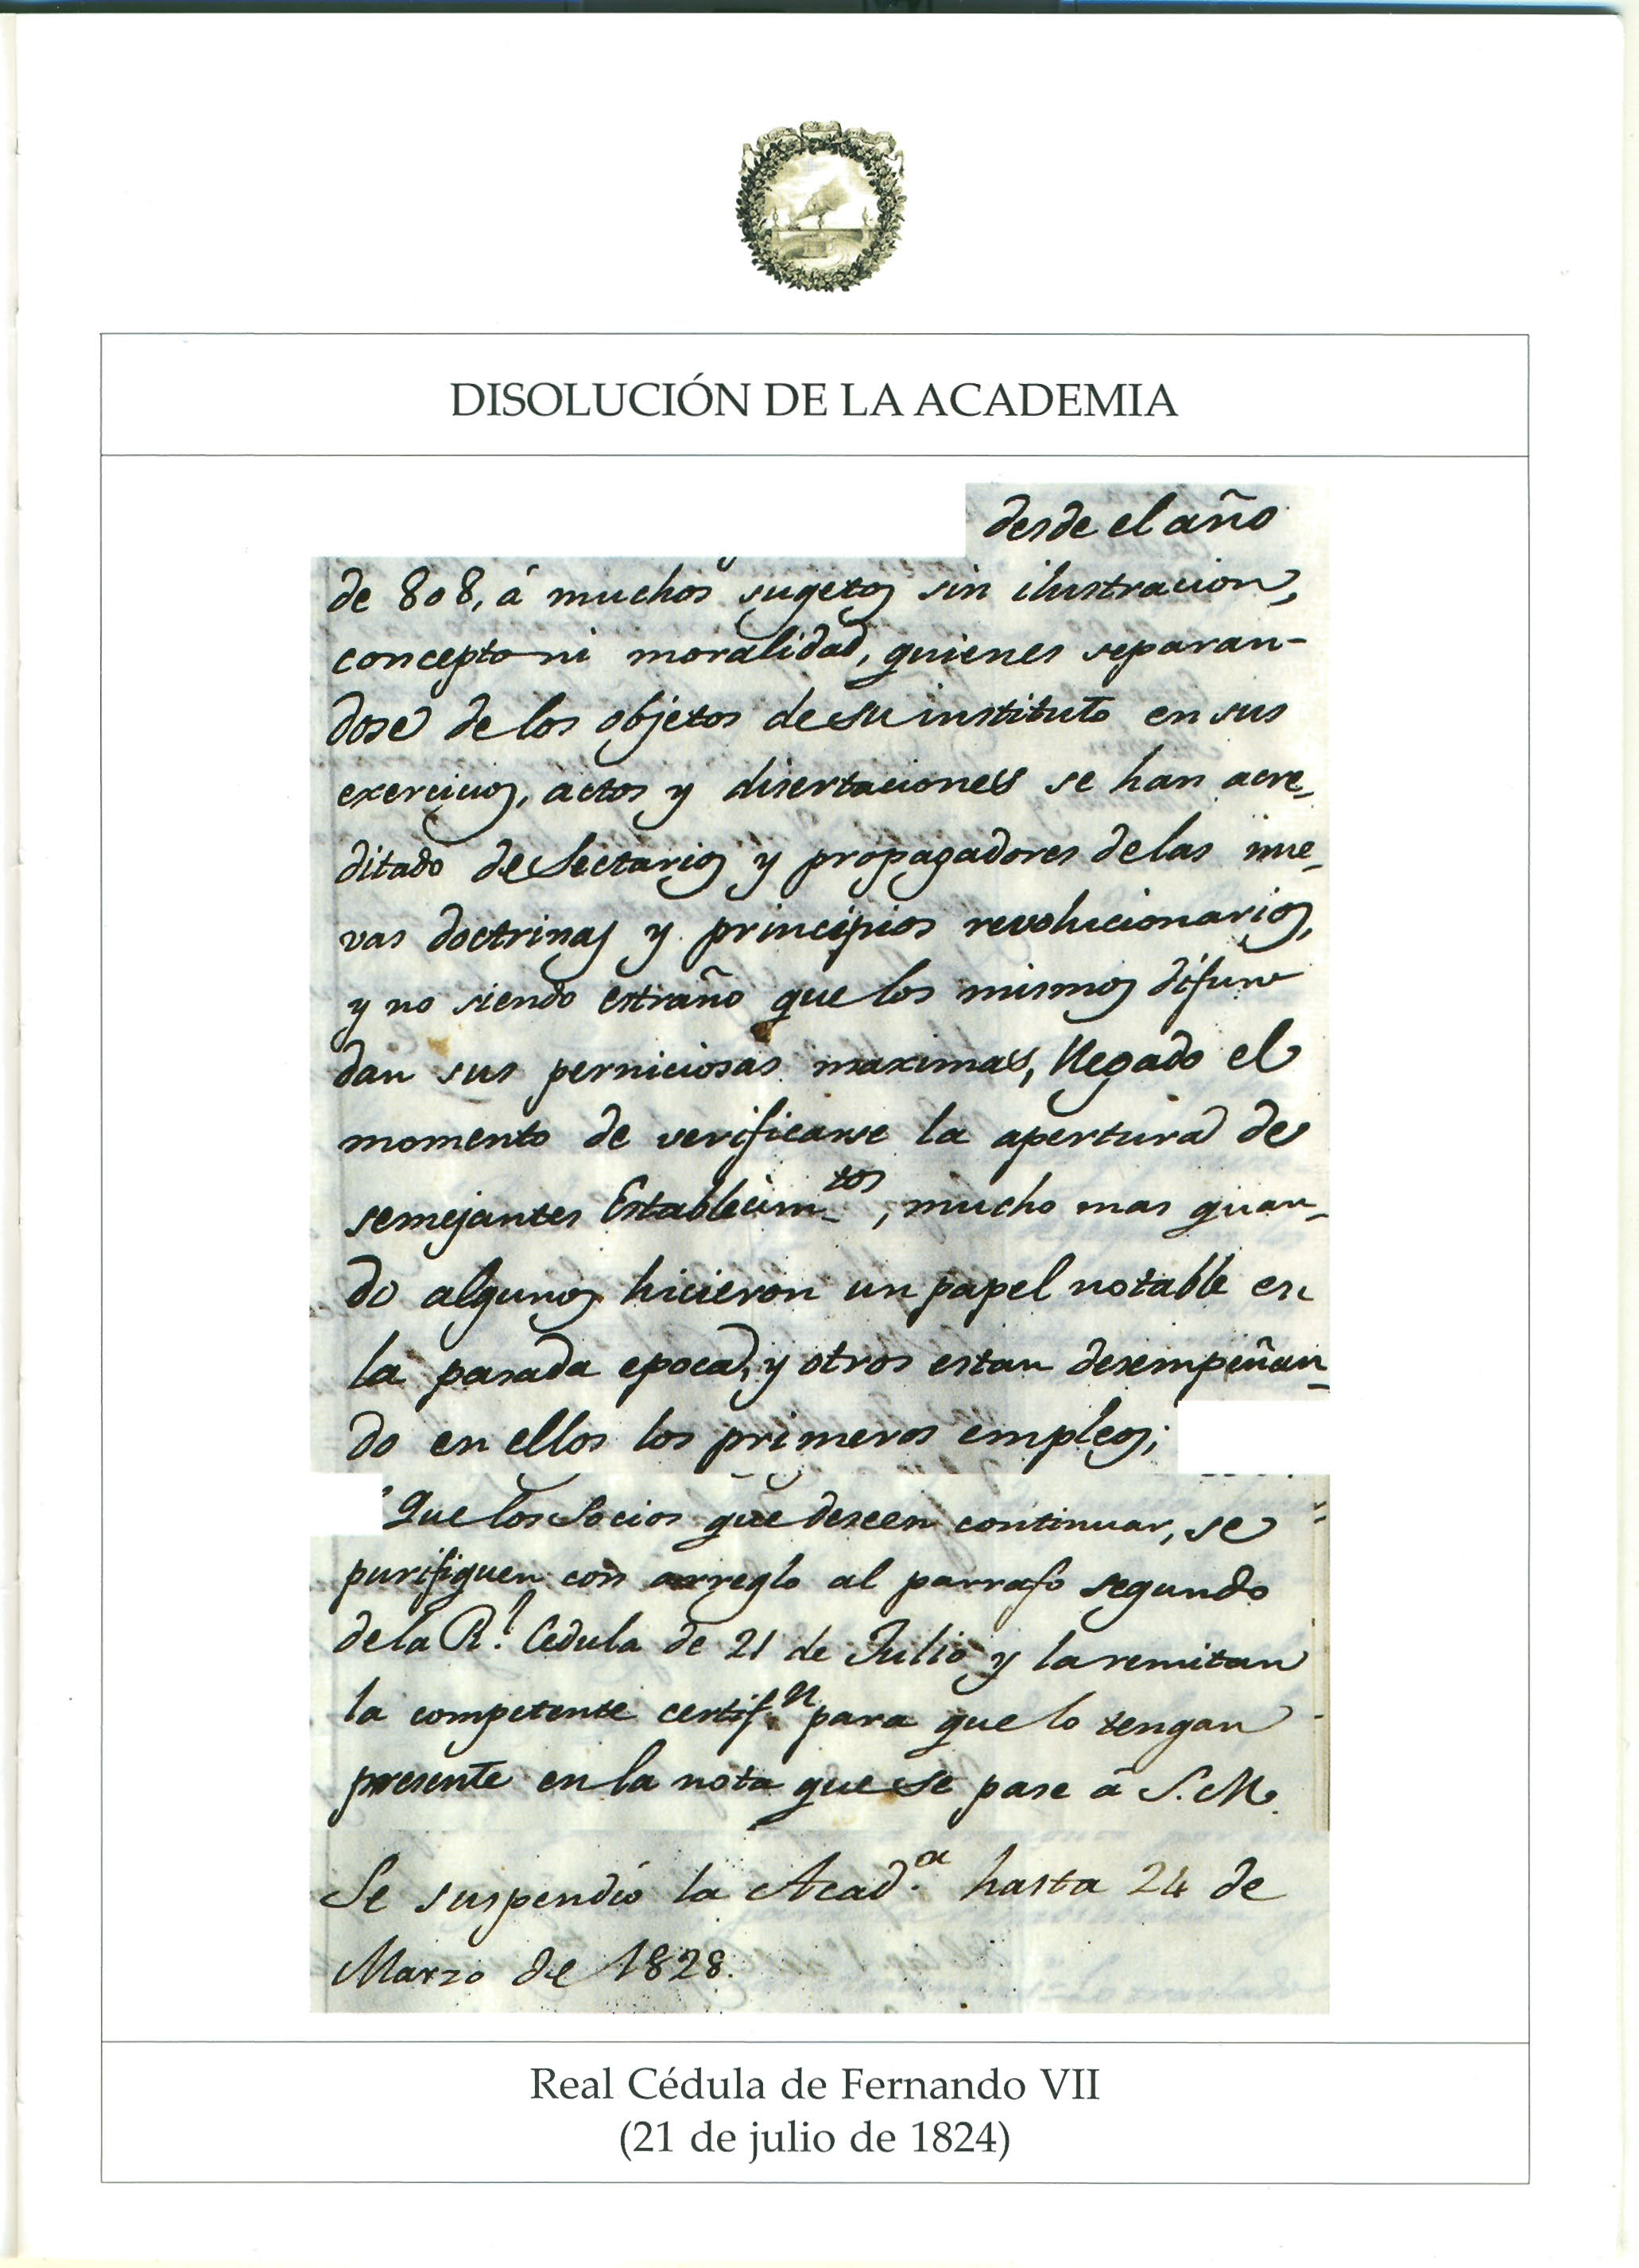 DISOLUCIÓN DE LA ACADEMIA
desde el año
de 808, á muchos sugetos sin ilustracion,
concepto ni moralidad, quienes separan-
dose de los objetos de su instituto en sus
exercicios, actos y disertaciones se han acre-
ditado de Sectarios y propagadores de las nue-
vas doctrinas y principios revolucionarios,
y no siendo estraño que los mismos difun
dan sus perniciosas maximas, llegado el
momento de verificarse la apertura de
semejantes Establecim.tos, mucho mas quan-
do algunos hicieron un papel notable en
la pasada epoca, y otros estan desempeñan-
do en ellos los primeros empleos;
Que los Socios que deseen continuar, se
purifiquen con arreglo al parrafo segundo
de la R.l Cedula de 21 de Julio y la remitan
la competente certif.n para que lo tengan
presente en la nota que se pase á S.M.
Se suspendió la Acad.a hasta 24 de
Marzo de 1828.
Real Cédula de Fernando VII
(21 de julio de 1824)